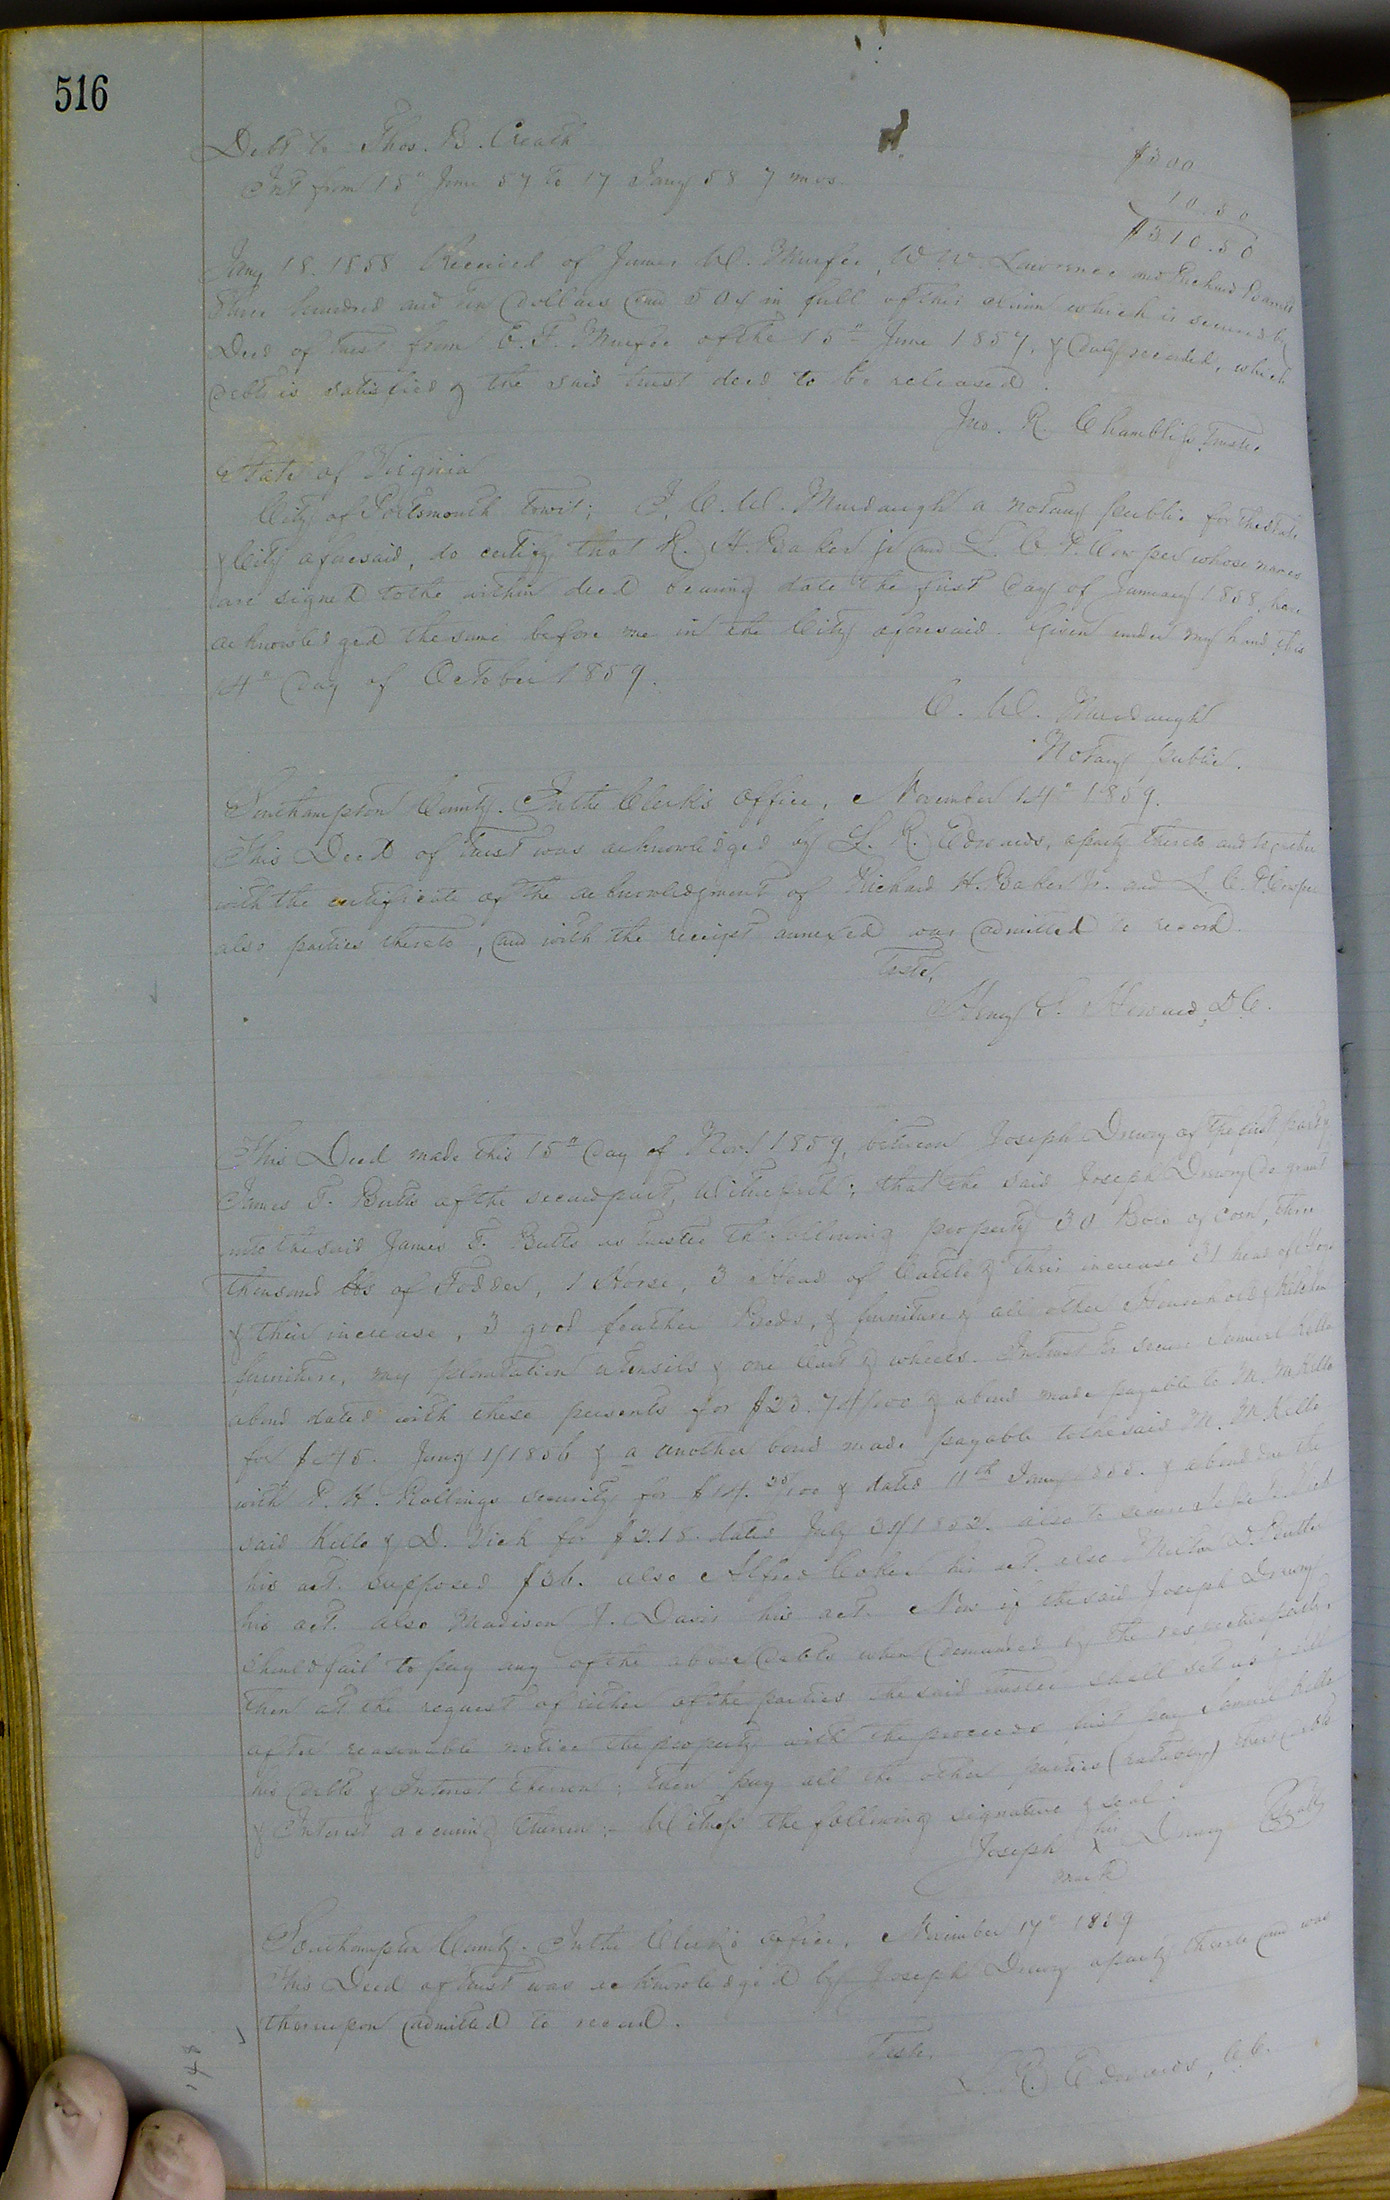 516
Debt to Thos. B. Creath $300
Int from 15" June 57 to 17 Jany 58 7 mos. 10.50
$310.50
Jany 18. 1858 Received of James W. Murfee, W. W. Lawrence and Richard
three hundred and ten dollars and 50 cts in full of this claim which is secured by
Deed of trust from E. F. Murfee of the 15" June 1857, & duly recorded, which
debt is satisfied & the said trust deed to be released.
Jno. R. Chambliss, Trustee
State of Virginia
City of Portsmouth towit; I, C. W. Murdaugh a notary public for the State
& City aforesaid, do certify that R. H. Baker jr and L. C. P. Cowper whose names
are signed to the within deed bearing date the first day of January 1858, have
acknowledged the same before me in the City aforesaid. Given under my hand this
14" day of October 1859.
C. W. Murdaugh
Notary public.
Southampton County. In the Clerk's Office, November 14" 1859.
This Deed of trust was acknowledged by L. R. Edwards, a party thereto and together
with the certificate of the acknowledgment of Richard H. Baker Jr. and L. C. P. Cowper
also parties thereto, and with the receipt annexed was admitted to record.
Teste,
Henry S. Howard, D.C.
This Deed made this 15" day of Nov 1859, between Joseph Drewry of the first part &
James T. Butts of the second part, Witnesseth; that the said Joseph Drewry do grant
unto the said James T. Butts as trustee the following property 30 Bols of corn, three
thousand lbs of Fodder, 1 Horse, 3 Head of Cattle & their increase 31 head of Hogs
& their increase, 3 good feather Beds, & furniture & all other Household & Kitchen
furniture, my plantation utensils & one Cart & wheels. In trust to secure Samuel Kello
a bond dated with these presents for $23.74/100 & a bond made payable to M. M Kello
for $45. Jany 1/1856 & a another bond made payable to the said M. M Kello
with P. H. Rollings security for $14. /100 & dated 11th Jany & a bond due the
said Kello & D. Vick for $2.18. dated July 1852. also to secure
his act. supposed $36. also Alfred Coker his act. also D. Butler
his act. also Madison J. Davis his act. Now if the said Joseph Drewry
should fail to pay any of the above debts when demanded by the respective parties,
then at the request of either of the parties the said trustee shall set up & sell
after reasonable notice the property with the proceeds first pay Samuel Kello
his debts & Interest thereon; then pay all the other parties (ratably) their debts
& Interest accruing thereon:- Witness the following signature & seal.
Joseph his x mark Drewry Seal
Southampton County. In the Clerk's office, November 17" 1859
This Deed of trust was acknowledged by Joseph Drewry a party thereto and was
thereupon admitted to record.
Teste.
L. R. Edwards, C.C.
148